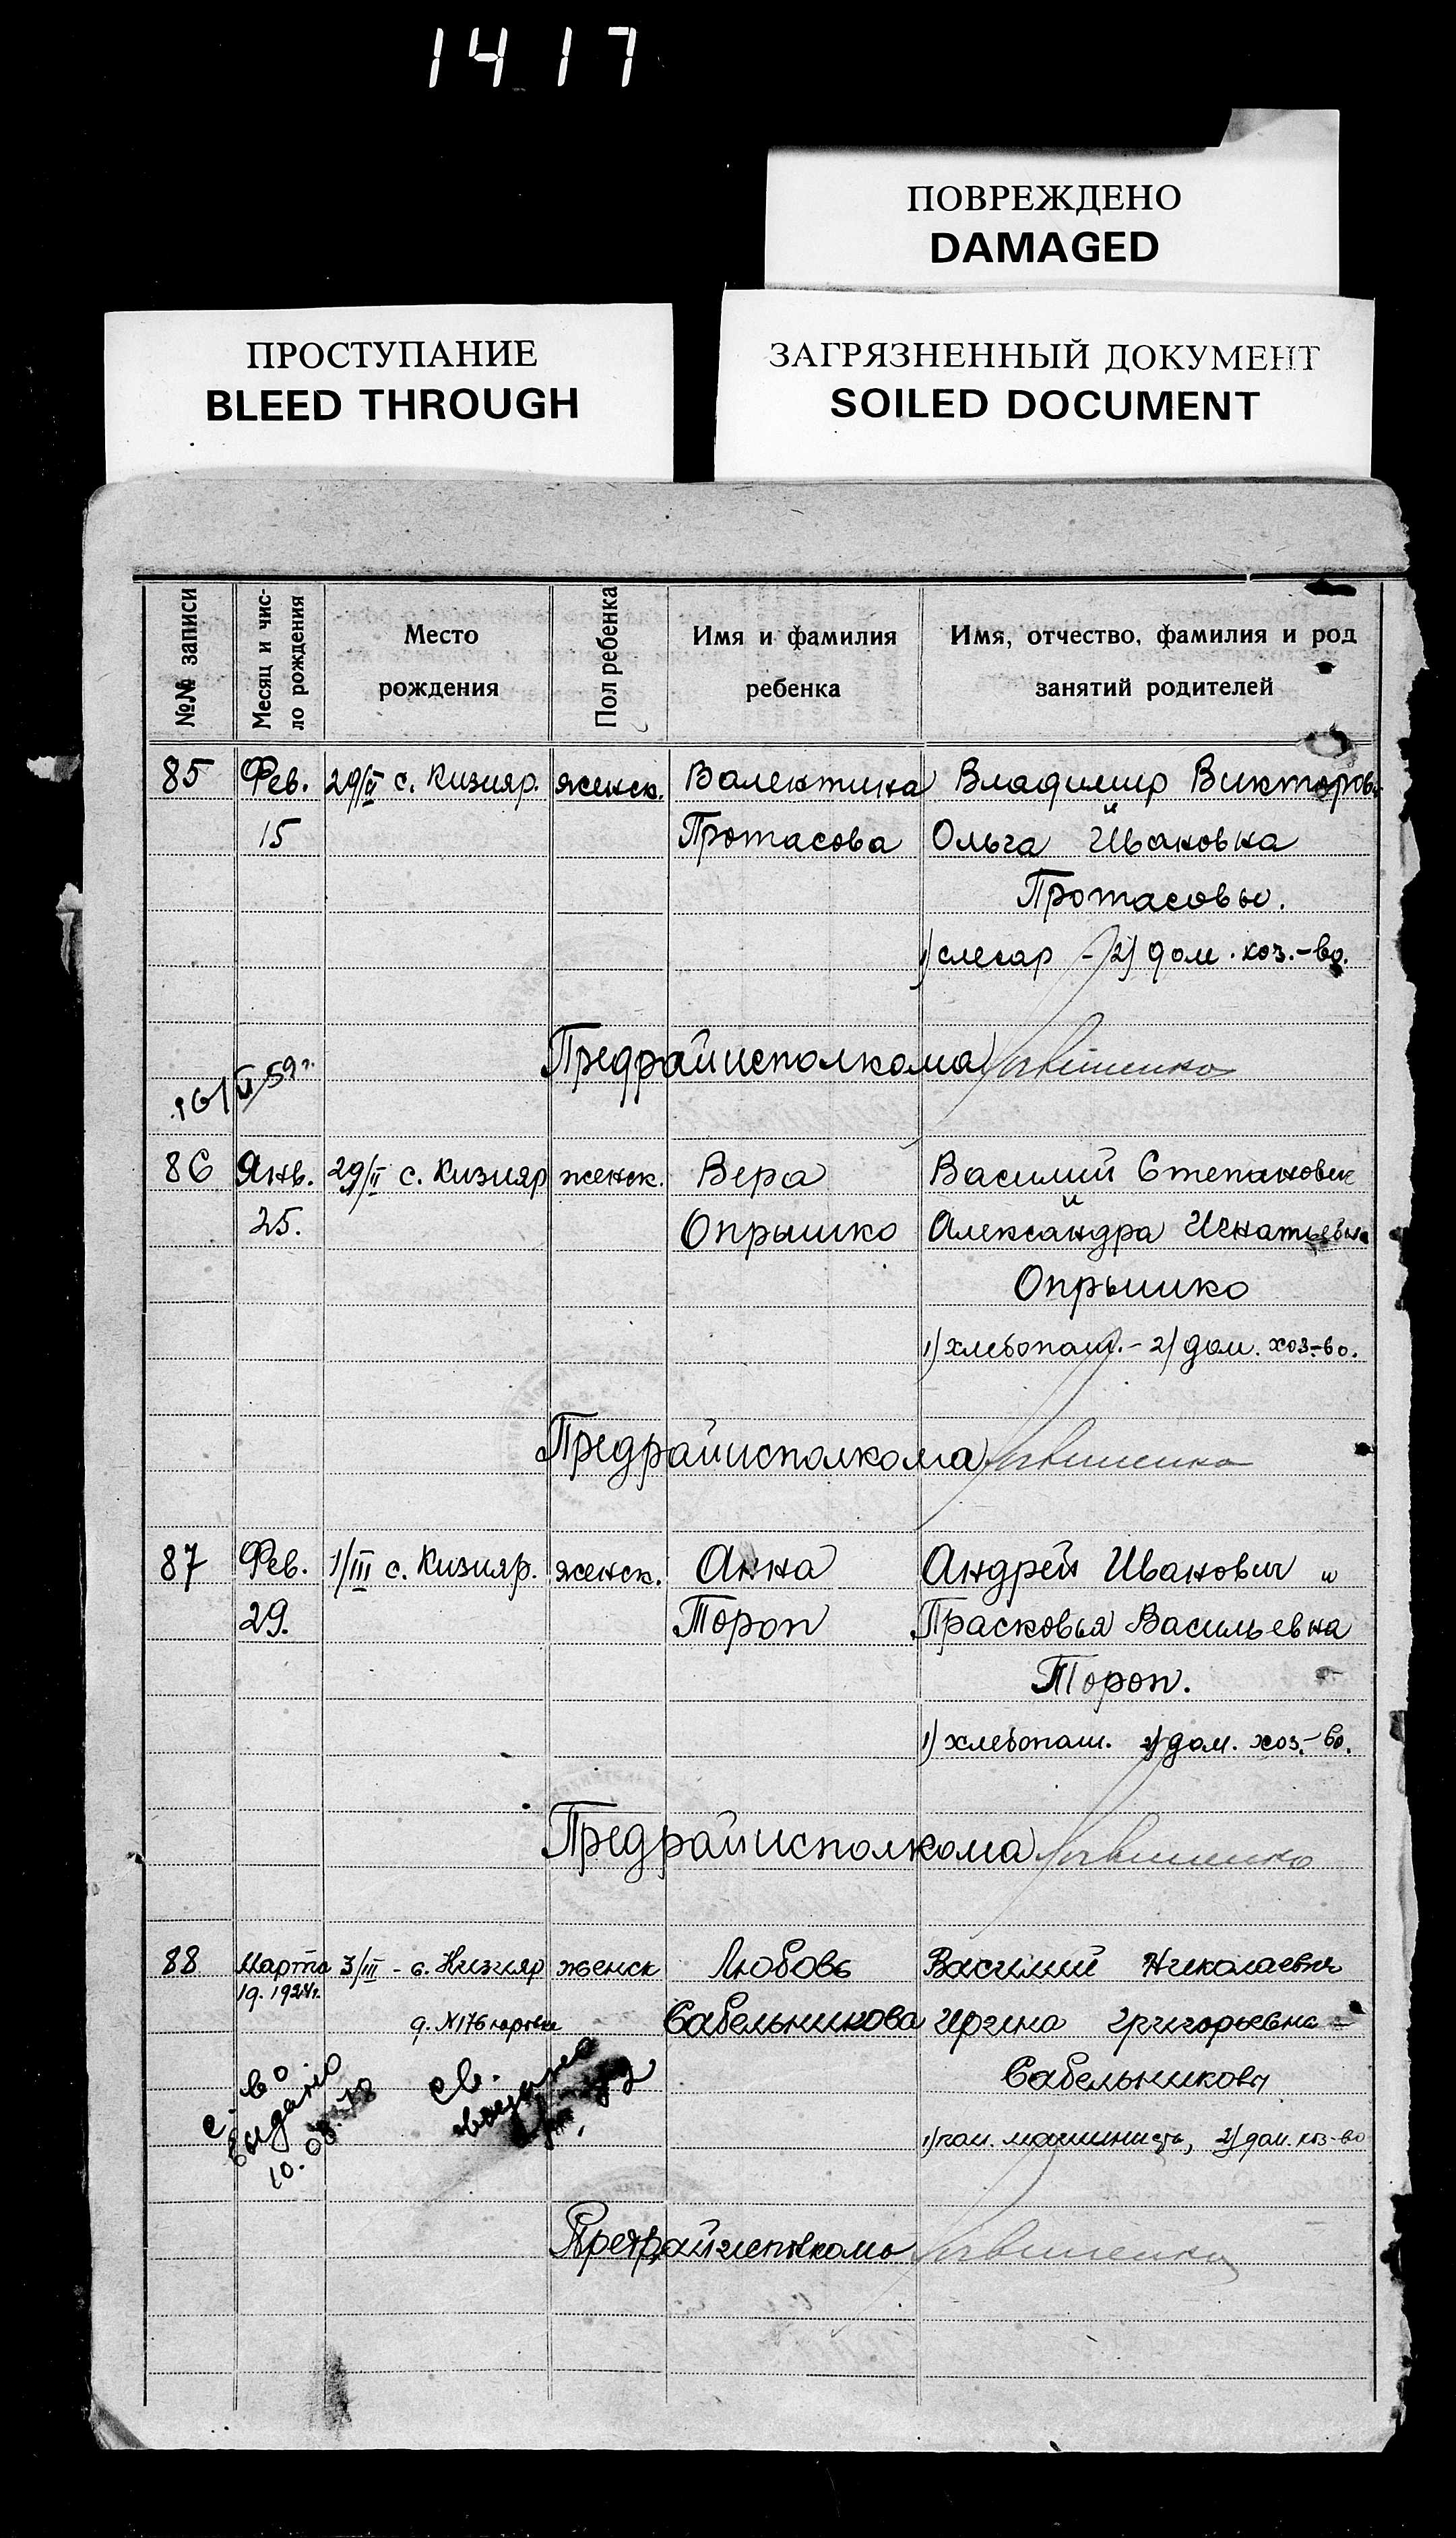 1417
ПОВРЕЖДЕНО
DAMAGED
ПРОСТУПАНИЕ
BLEED THROUGH
ЗАГРЯЗНЕННЫЙ ДОКУМЕНТ
SOILED DOCUMENT
№№ записи
Месяц и чис-
ло рождения
Место
рождения
Пол ребенка
Имя и фамилия
ребенка
Имя, отчество, фамилия и род
занятий родителей
85 Фев. 29/II с. Кизияр. женск. Валентина Владимир Викторов.
15 Протасова и Ольга Ивановна
Протасовы.
1) слесар - 2) дом. хоз.-во.
Предрайисполкома
16/II 59г.
86 Янв. 29/II с. Кизияр женск. Вера Василий Степанович
25. Опрышко и Александра Игнатьевна
Опрышко
1) хлебопаш. - 2) дом. хоз-во.
Предрайисполкома
87 Фев. 1/III с. Кизияр. женск. Анна Андрей Иванович и
29. Тороп Прасковья Васильевна
Тороп.
1) хлебопаш. 2) дом. хоз.-во.
Предрайисполкома
88 Марта 3/III - с. Кизияр женск Любовь Василий Николаевич
19. 1924г.
д. №176 Сабельникова Ирина Григорьевна -
Сабельниковы
с. во
выдано
10. 08. 78
св.
выдано
1) пом. машинистъ, 2) дом. хоз-во
Предрайисполкома